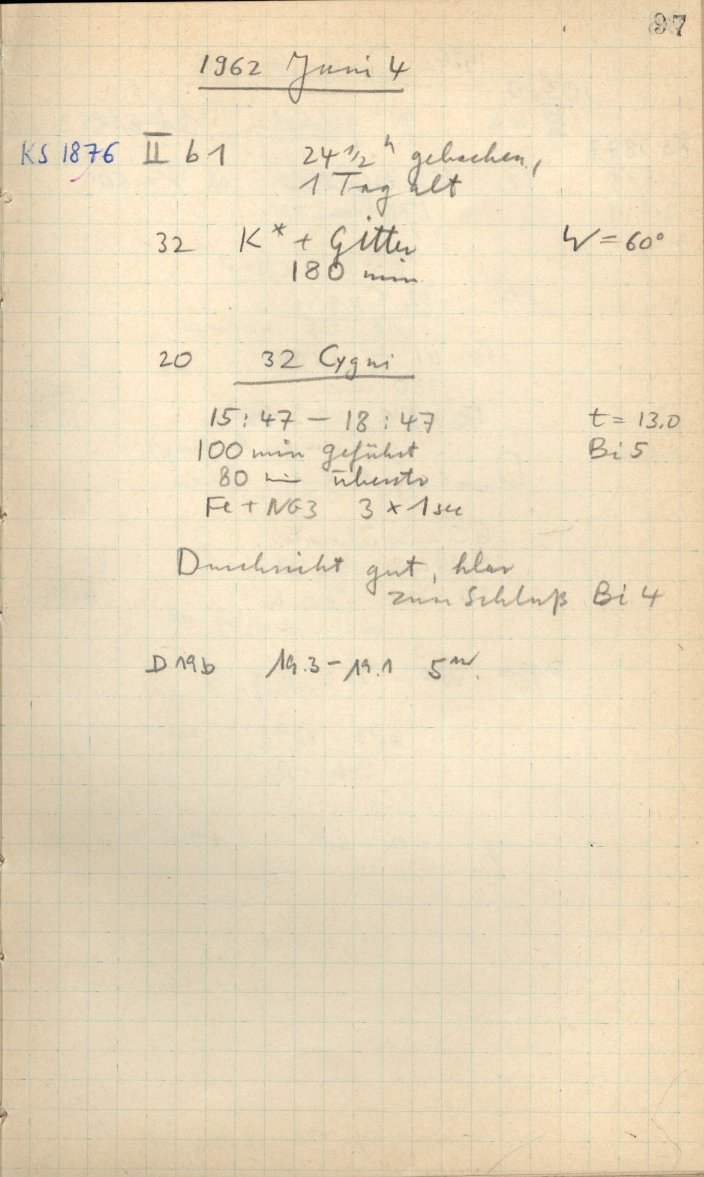 97
1962 Juni 4
KS 1876 II b 1 24 1/2 h gebacken,
1 Tag alt
32 K* + Gitter W = 60°
180 min
20 32 Cygni
15:47 – 18:47 t = 13.0
100 min geführt Bi 5
80 min
Fe + NG3 3 x 1 sec
Durchsicht gut, klar
zum Schluß Bi 4
D 19b 19.3 – 19.1 5